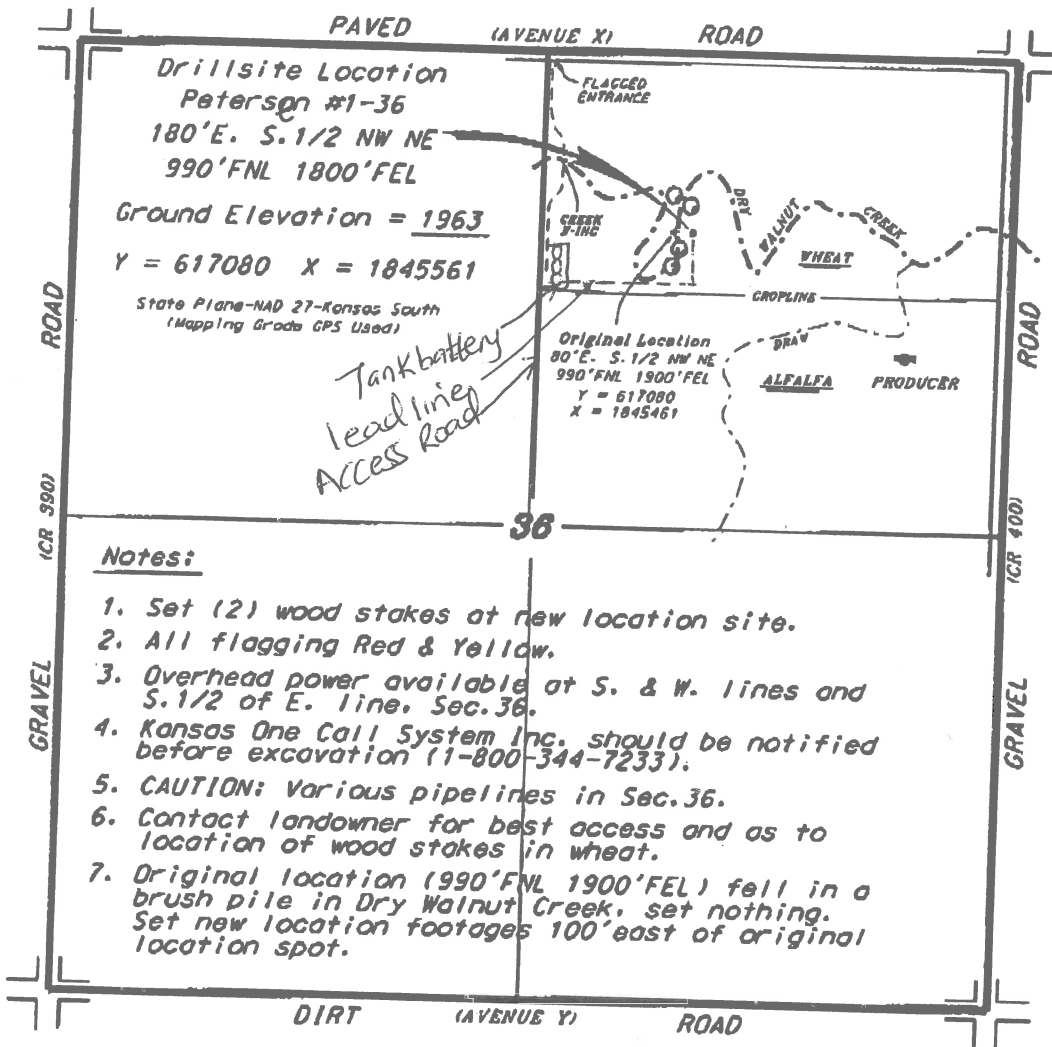 PAVED (AVENUE X) ROAD
Drillsite Location
Peterson #1-36
e
180'E. S.1/2 NW NE
990'FNL 1800'FEL
Ground Elevation = 1963
Y = 617080 X = 1845561
State Plane-NAD 27-Kansas South
(Mapping Grade GPS Used)
FLAGGED
ENTRANCE
CREEK
X-ING
DRY
WALNUT
CREEK
WHEAT
CROPLINE
DRAW
ALFALFA
PRODUCER
Original Location
80'E. S.1/2 NW NE
990'FNL 1900'FEL
Y = 617080
X = 1845461
Tank battery
lead line
Access Road
36
ROAD
(CR 990)
GRAVEL
ROAD
(CR 400)
GRAVEL
Notes:
1. Set (2) wood stakes at new location site.
2. All flagging Red & Yellow.
3. Overhead power available at S. & W. lines and
S.1/2 of E. line, Sec.36.
4. Kansas One Call System Inc. should be notified
before excavation (1-800-344-7233).
5. CAUTION: Various pipelines in Sec.36.
6. Contact landowner for best access and as to
location of wood stakes in wheat.
7. Original location (990'FNL 1900'FEL) fell in a
brush pile in Dry Walnut Creek, set nothing.
Set new location footages 100'east of original
location spot.
DIRT (AVENUE Y) ROAD